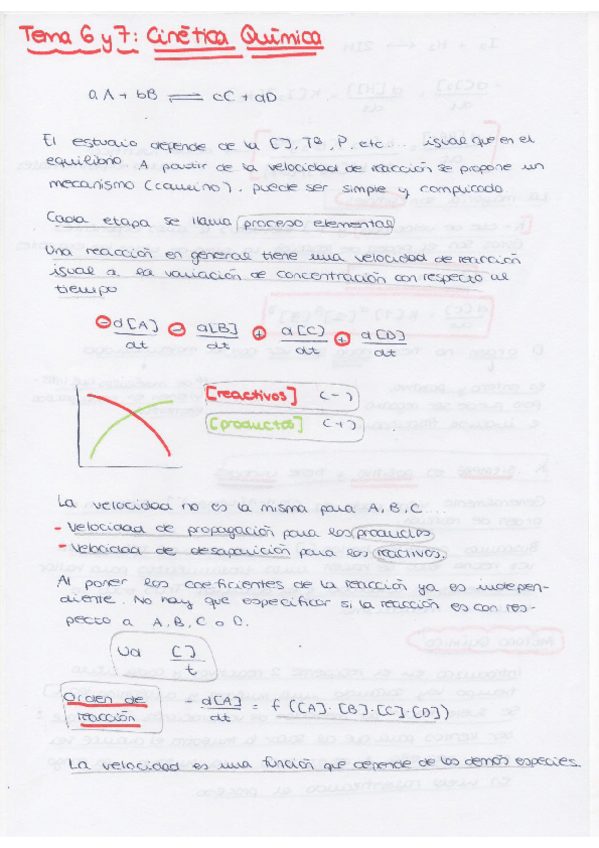 Tema 6 y 7: Cinética Química
aA + bB ⇌ cC + dD
El estudio depende de la [ ], Tª, P, etc... igual que en el
equilibrio. A partir de la velocidad de reacción se propone un
mecanismo (camino), puede ser simple y complicado
Cada etapa se llama proceso elemental
Una reacción en general tiene una velocidad de reacción
igual a la variación de concentración con respecto al
tiempo
⊖ d[A]/dt ⊖ d[B]/dt ⊕ d[C]/dt ⊕ d[D]/dt
[reactivos] (-)
[productos] (+)
La velocidad no es la misma para A, B, C...
- Velocidad de propagación para los productos
- Velocidad de desaparición para los reactivos.
Al poner los coeficientes de la reacción ya es indepen-
diente. No hay que especificar si la reacción es con res-
pecto a A, B, C o D.
Ud [ ]/t
Orden de
reacción
- d[A]/dt = f ([A]·[B]·[C]·[D])
La velocidad es una función que depende de las demás especies.